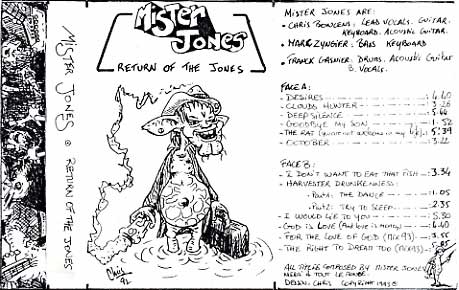 MISTER JONES @ RETURN OF THE JONES
MISTER
JONES
RETURN OF THE JONES
Chris
92
MISTER JONES ARE:
• CHRIS BOWLENS; LEAD VOCALS. GUITAR.
KEYBOARD. ACOUSTIC GUITAR.
• MARK ZYNGIER: BASS KEYBOARD
• FRANCK GASNIER: DRUMS. ACOUSTIC GUITAR
B. VOCALS.
FACE A:
- DESIRES 4.40
- CLOUDS HUNTER 3.26
- DEEP SILENCE
- GOODBYE MY SON 1.52
- THE RAT (YOU'RE NOT WELCOME IN my life) 5'39
- OCTOBER 3.22
FACE B:
- I DON'T WANT TO EAT THAT FISH 3.34
- HARVESTER DRUNKENNESS:
Part1: THE DANCE 1.05
Part2: TRY TO SLEEP 2.35
- I WOULD LIE TO YOU 5.30
- GOD IS LOVE (And love is money) 4.40
- FOR THE LOVE OF GOD (MIX 93)
- THE RIGHT TO DREAM TOO (MIX93)
ALL TITLES COMPOSED BY MISTER JONES
MERCI A TOUT LE MONDE.
DESSIN: CHRIS COPYRIGHT 1993 ©